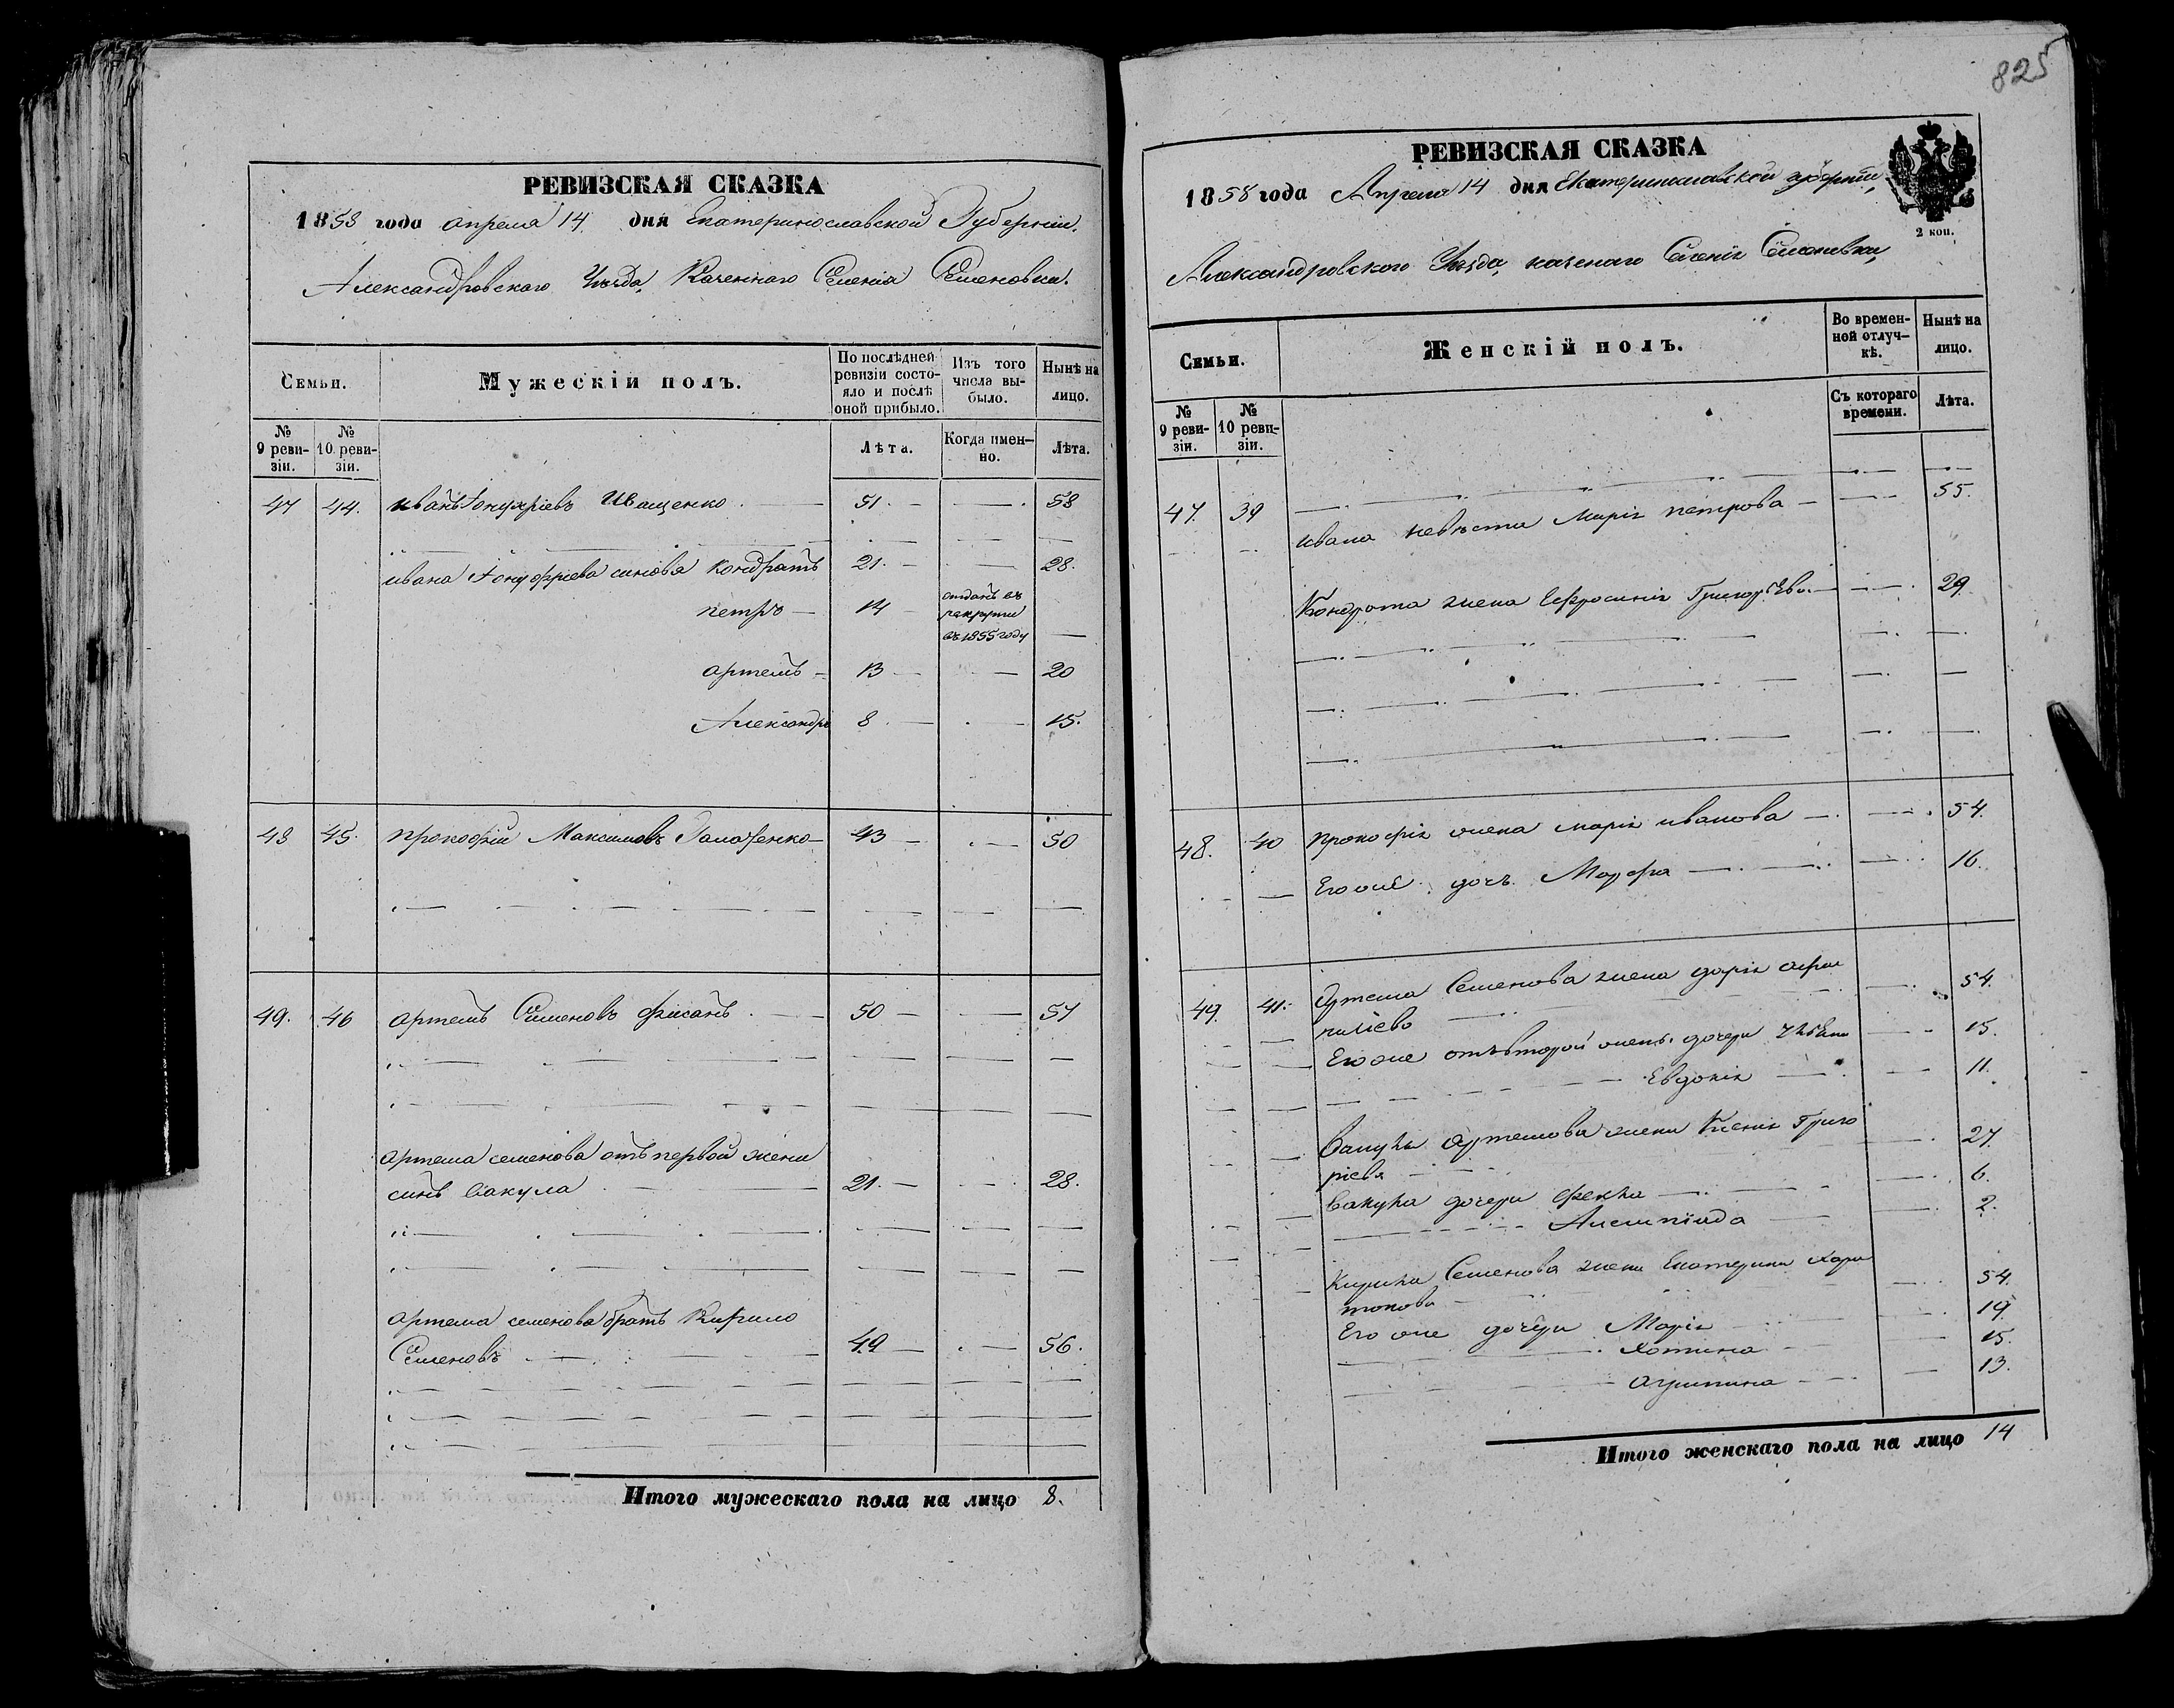 РЕВИЗСКАЯ СКАЗКА
1858 года апреля 14 дня Екатеринославской Губернии.
Александровского Уезда, Казеннаго Селенія Семеновки.
Семьи.
Мужескій полъ.
По послѣдней ревизіи состояло и послѣ оной прибыло.
Изъ того числа выбыло.
Нынѣ на лицо.
№ 9 ревизіи.
№ 10 ревизіи.
Лѣта.
Когда именно.
Лѣта.
47 44. иванъ Фонуфріевъ Иващенко 51. 58
ивана Фонуфріева синовя Кондратъ 21. 28.
петръ 14 отданъ въ рекруты въ 1855 году
артемъ 13 20
Александръ 8 15.
48 45. прокофій Максимовъ 43 50
49. 46 артемъ Семеновъ фисанъ 50 57
артема семенова отъ первой жени
синъ Вакула 21. 28.
артема семенова братъ Кирило
Семеновъ 49 56.
Итого мужескаго пола на лицо 8.
825
РЕВИЗСКАЯ СКАЗКА
1858 года Апреля 14 дня Екатеринославской губерніи,
2 коп.
Александровского Уезда, казенаго Селенія Семеновки,
Семьи.
Женскій полъ.
Во временной отлучкѣ.
Нынѣ на лицо.
№ 9 ревизіи.
№ 10 ревизіи.
Съ котораго времени.
Лѣта.
47. 39
ивана невѣста Марія петрова 55.
Кондрата жена Ефросинія Григорьева 29.
48. 40 прокофія жена марія иванова 54.
Его же дочь Марфа 16.
49. 41. Артема Семенова жена дарія 54.
Его же отъ второй жени дочери 15.
Евдокія 11.
Вакулы Артемова жена Ксенія Григо
ріева 27.
Вакулы дочери Фекла 6.
Алимпіада 2.
Кирила Семенова жена Екатерина Хари
тонова 54.
Его же дочери Марія 19.
Хотина 15.
Агрипина 13.
Итого женскаго пола на лицо 14